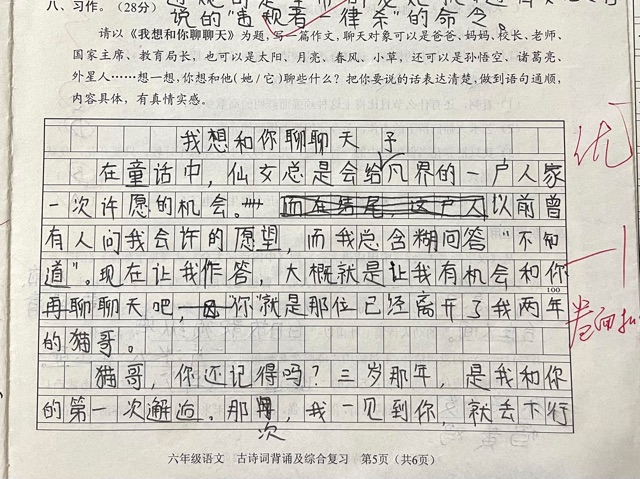 说的"违规者一律杀"的命令。
八、习作。(28分)
请以《我想和你聊聊天》为题,写一篇作文,聊天对象可以是爸爸、妈妈、校长、老师、
国家主席、教育局长,也可以是太阳、月亮、春风、小草,还可以是孙悟空、诸葛亮、
外星人……想一想,你想和他(她/它)聊些什么?把你要说的话表达清楚,做到语句通顺,
内容具体,有真情实感。
我想和你聊聊天
在童话中,仙女总是会给凡界的一户人家
一次许愿的机会。而在结尾,这户人以前曾
有人问我会许的愿望,而我总含糊问答"不知
道"。现在让我作答,大概就是让我有机会和你
100
再聊聊天吧,"你"就是那位已经离开了我两年
的猫哥。
猫哥,你还记得吗?三岁那年,是我和你
的第一次邂逅。那次,我一见到你,就去下行
优
卷面扣
六年级语文 古诗词背诵及综合复习 第5页(共6页)